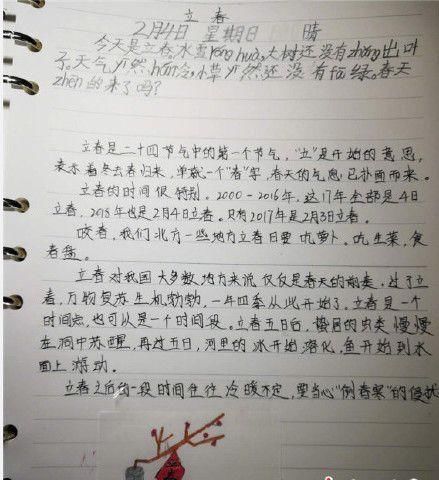 立 春
2月4日 星期日 晴
今天是立春。冰雪róng huà,大树还没有zhǎng出叶
子。天气yī然hán冷,小草yī然还没有fā绿。春天
zhēn的来了吗?
立春是二十四节气中的第一个节气,"立"是开始的意思,
表示着冬去春归来,单就一个"春"字,春天的气息已扑面而来。
立春的时间很特别。2000-2016年,这17年全部是4日
立春,2018年也是2月4日立春。只有2017年是2月3日立春。
咬春,我们北方一些地方立春日要吃萝卜、吃生菜,食
春
立春对我国大多数地方来说仅仅是春天的前奏,过了立
春,万物复苏生机勃勃,一年四季从此开始了。立春是一个
时间点,也可以是一个时间段。立春五日后,蛰居的虫类慢慢
在洞中苏醒,再过五日,河里的冰开始溶化,鱼开始到水
面上游动。
立春之后的一段时间往往冷暖不定,要当心"倒春寒"的侵扰